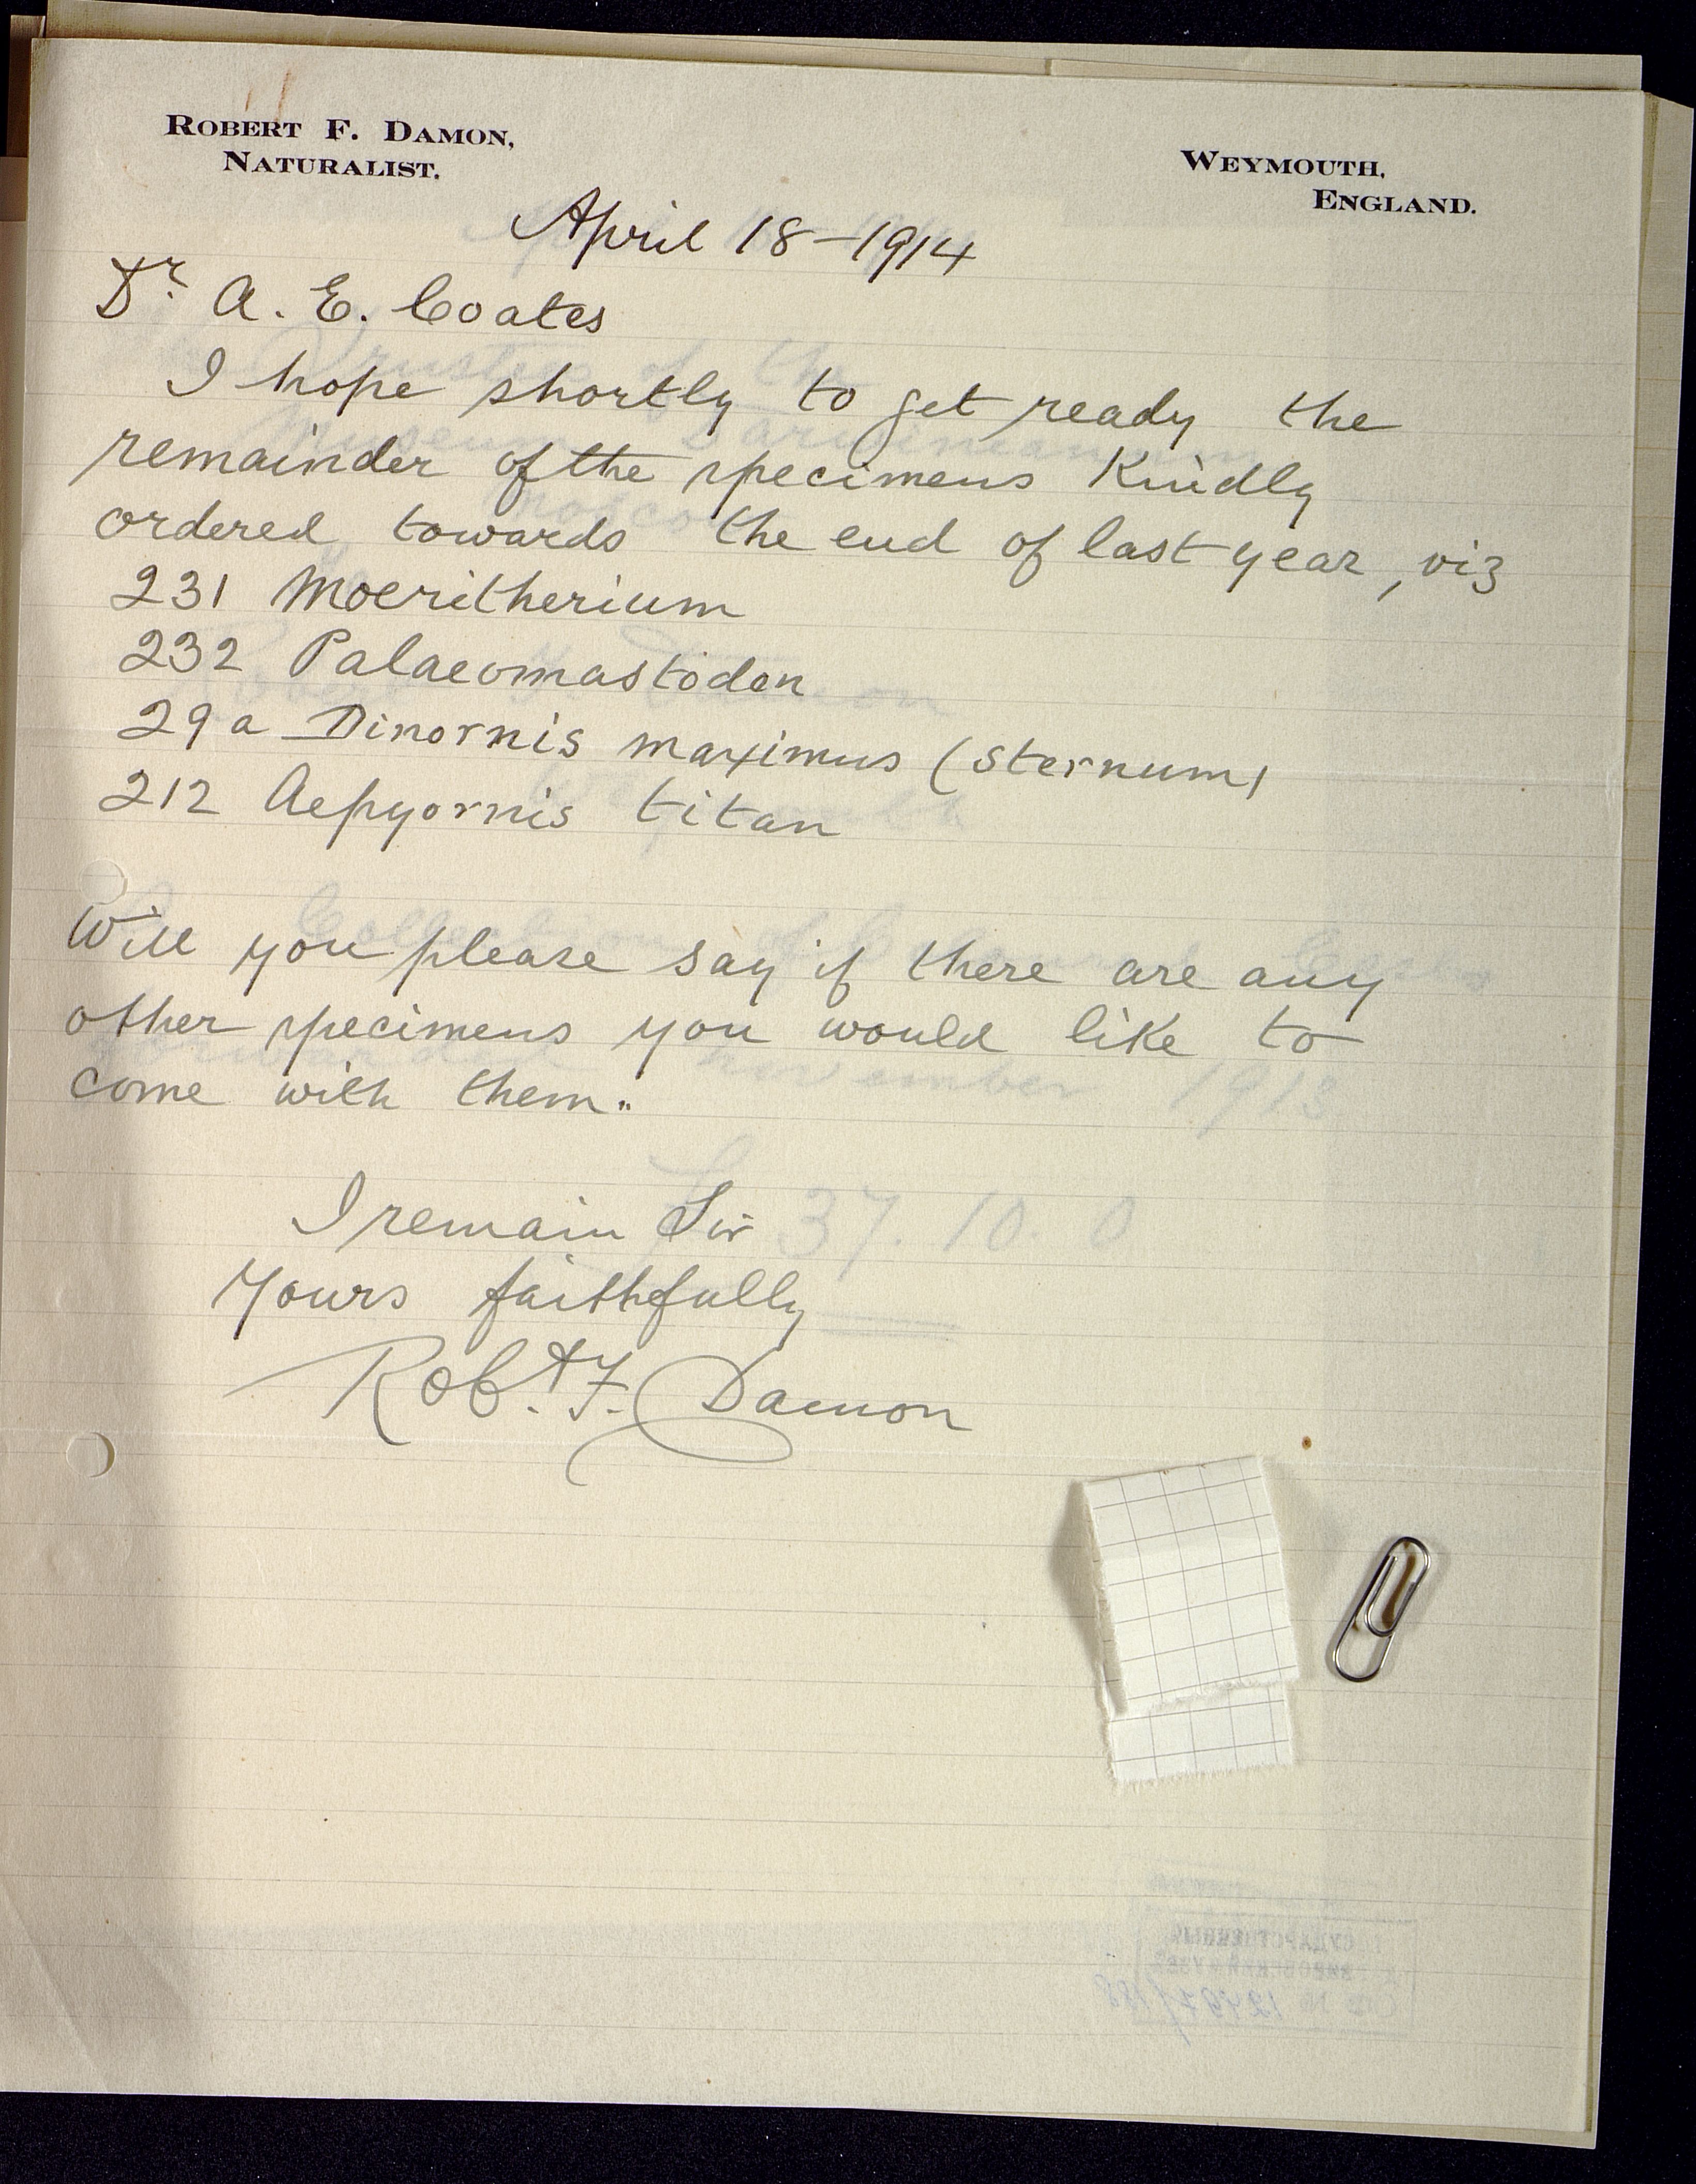 ROBERT F. DAMON,
NATURALIST.
WEYMOUTH,
ENGLAND.
April 18-1914
Dr. A. E. Coates
I hope shortly to get ready the
remainder of the specimens Kindly
ordered towards the end of last year, viz
231 Moeritherium
232 Palaeomastodon
29a Dinornis maximus (Sternum)
212 Aepyornis titan
Will you please say if there are any
other specimens you would like to
come with them..
I remain Sir
Yours faithfully
Robt. F. Damon
37. 10. 0